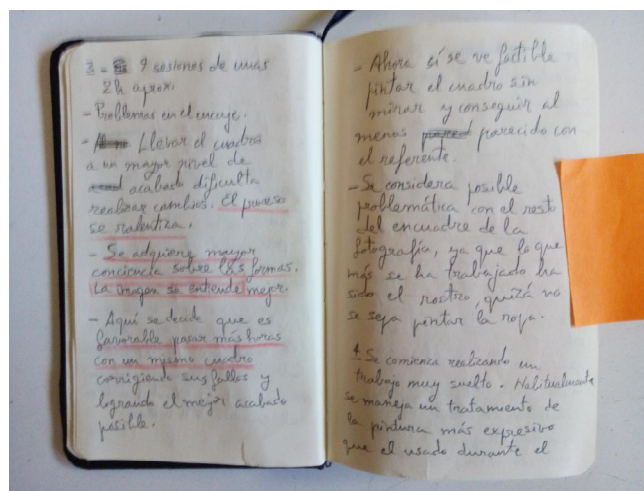 3- 9 sesiones de unas
2h aprox.
- Problemas en el encaje.
- Llevar el cuadro
a un mayor nivel de
acabado dificulta
realizar cambios. El proceso
se ralentiza.
- Se adquiere mayor
conciencia sobre las formas.
La imagen se entiende mejor.
- Aquí se decide que es
favorable pasar más horas
con un mismo cuadro
corrigiendo sus fallos y
logrando el mejor acabado
posible.
- Ahora sí se ve factible
pintar el cuadro sin
mirar y conseguir al
menos parecido con
el referente.
- Se considera posible
problemática con el resto
del encuadre de la
fotografía, ya que lo que
más se ha trabajado ha
sido el rostro, quizá no
se sepa pintar la ropa.
4 Se comienza realizando un
trabajo muy suelto. Habitualmente
se maneja un tratamiento de
la pintura más expresivo
que el usado durante el